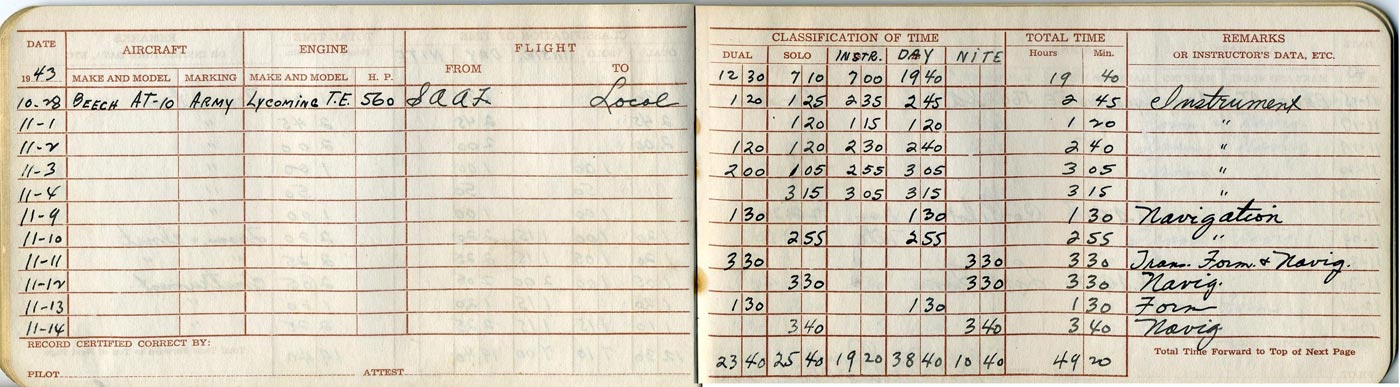 DATE AIRCRAFT ENGINE FLIGHT CLASSIFICATION OF TIME TOTAL TIME REMARKS
FROM TO DUAL SOLO INSTR. DAY NITE Hours Min. OR INSTRUCTOR'S DATA, ETC.
1943 MAKE AND MODEL MARKING MAKE AND MODEL H. P. 12 30 7 10 7 00 19 40 19 40
10-28 BEECH AT-10 ARMY Lycoming T.E. 560 SAAF Local 1 20 1 25 2 35 2 45 2 45 Instrument
11-1 1 20 1 15 1 20 1 20 "
11-2 1 20 1 20 2 30 2 40 2 40 "
11-3 2 00 1 05 2 55 3 05 3 05 "
11-4 3 15 3 05 3 15 3 15 "
11-9 1 30 1 30 1 30 Navigation
11-10 2 55 2 55 2 55 "
11-11 3 30 3 30 3 30 Trans. Form. & Navig.
11-12 3 30 3 30 3 30 Navig.
11-13 1 30 1 30 1 30 Form
11-14 3 40 3 40 3 40 Navig
RECORD CERTIFIED CORRECT BY: Total Time Forward to Top of Next Page
23 40 25 40 19 20 38 40 10 40 49 20
PILOT ATTEST